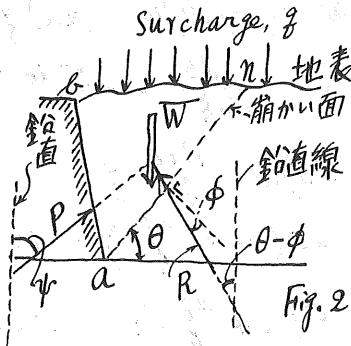 Surcharge, q
b
n
地表
崩かい面
鉛直
W
鉛直線
P
φ
θ
θ-φ
ψ
a
R
Fig. 2